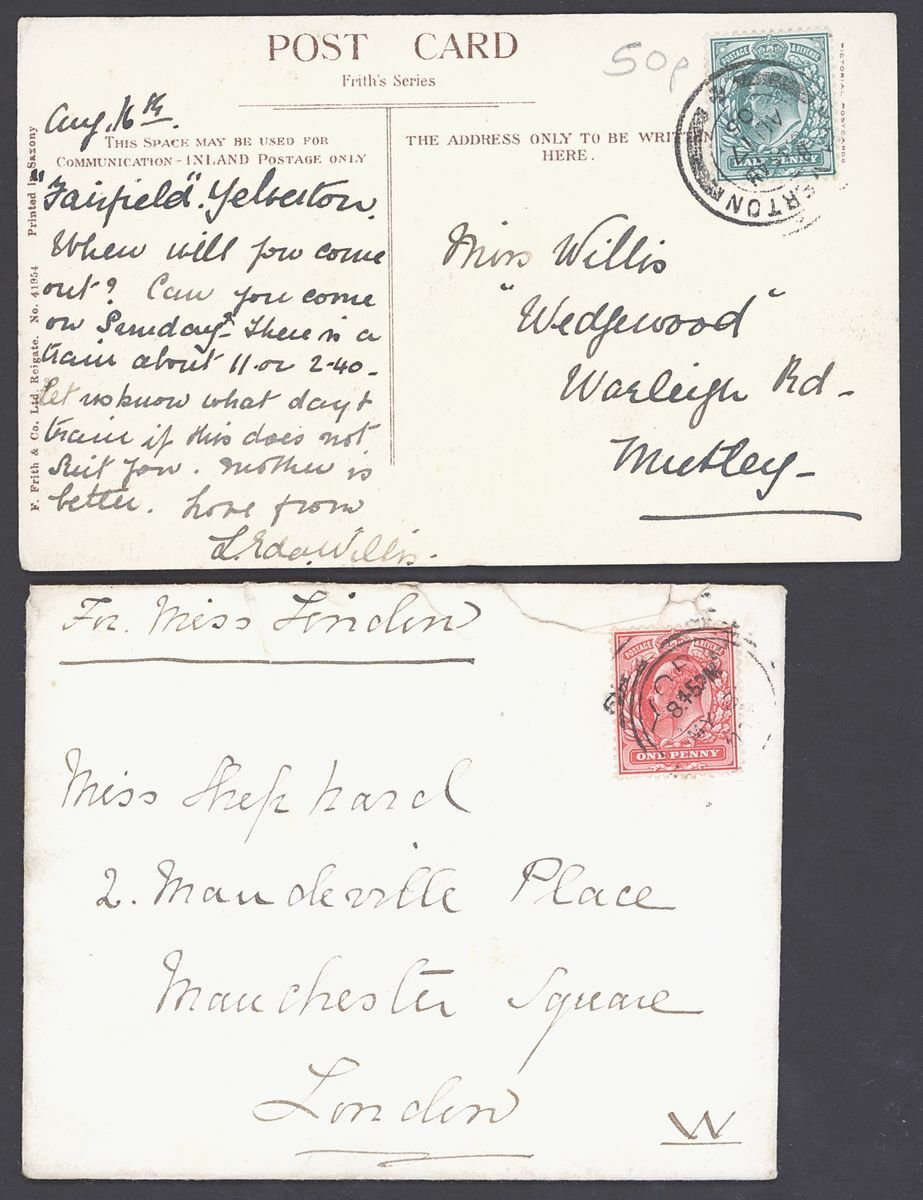 POST CARD
Frith's Series
50p
POSTAGE & REVENUE
HALF PENNY
ERTON
AU 17
06
Aug. 16th.
THIS SPACE MAY BE USED FOR
COMMUNICATION - INLAND POSTAGE ONLY
THE ADDRESS ONLY TO BE WRIT
HERE.
F. Frith & Co. Ltd. Reigate. No. 41954 Printed in Saxony
PICTORIAL POSTCARDS
"Fairfield". Yelverton.
When will you come
out? Can you come
on Sunday? There is a
train about 11 or 2-40-
let us know what day &
train if this does not
suit you. Mother is
better. Love from
L. Eda Willis.
Miss Willis
"Wedgewood"
Warleigh Rd-
Mutley-
For. Miss Lindon
POSTAGE & REVENUE
8.45 PM
MY
ONE PENNY
Miss Shephard
2. Mandeville Place
Manchester Square
London
W